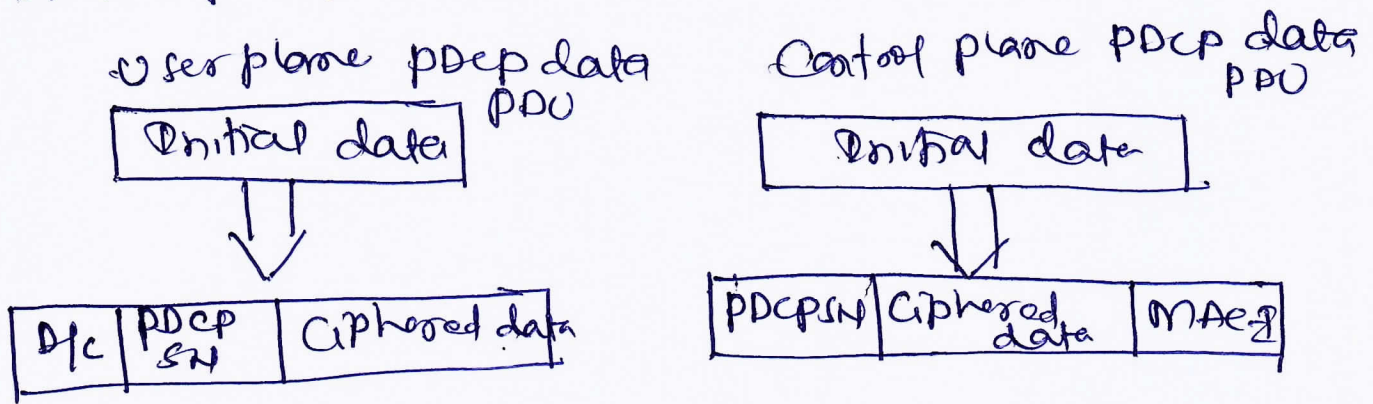 User plane PDCP data
PDU
Initial data
D/C PDCP SN Ciphered data
Control plane PDCP data
PDU
Initial data
PDCPSN Ciphered data MAC-I